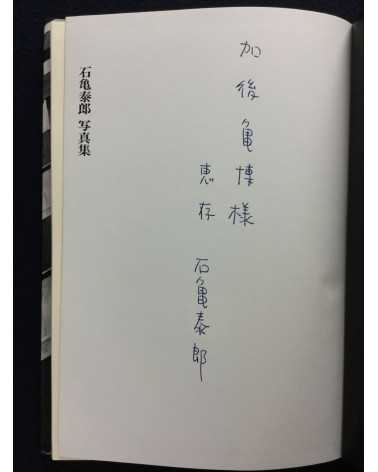 加後亀博様
恵存
石亀泰郎
石亀泰郎 写真集